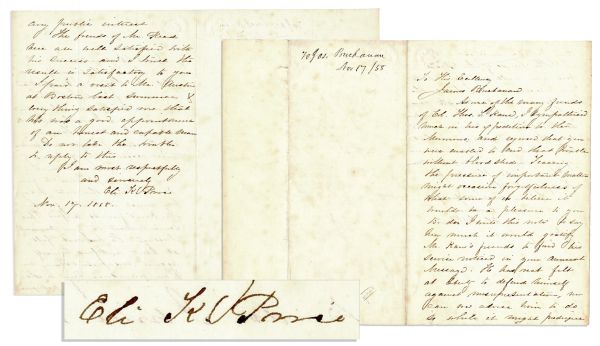 To His Excellency
James Buchanan
As one of the many friends
of Col. Thos. L. Kane, I sympathised
much in his expedition to the
Mormons, and rejoiced that you
was enabled to end that trouble
without blood shed. Fearing
the pressure of important matters
might occasion forgetfulness of
what some of us believe it
would be a pleasure to you
to do, I write this note to say
how much it would gratify
Mr. Kane's friends to find his
service noticed in your annual
Message. He had not felt
at liberty to defend himself
against misrepresentation, nor
can we advise him to do
so while it might prejudice
any public interest
The friends of Mr. Read
here are well satisfied with
his success and I trust the
result is satisfactory to you
I paid a visit to Mr.
at Boston last summer &
every thing satisfied me that
his was a good appointment
of an honest and capable man
Do not take the trouble
to reply to this
I am most respectfully
and sincerely
Eli K Price
Nov. 17. 1858.
To Jas. Buchanan
Nov 17/58
Eli K Price